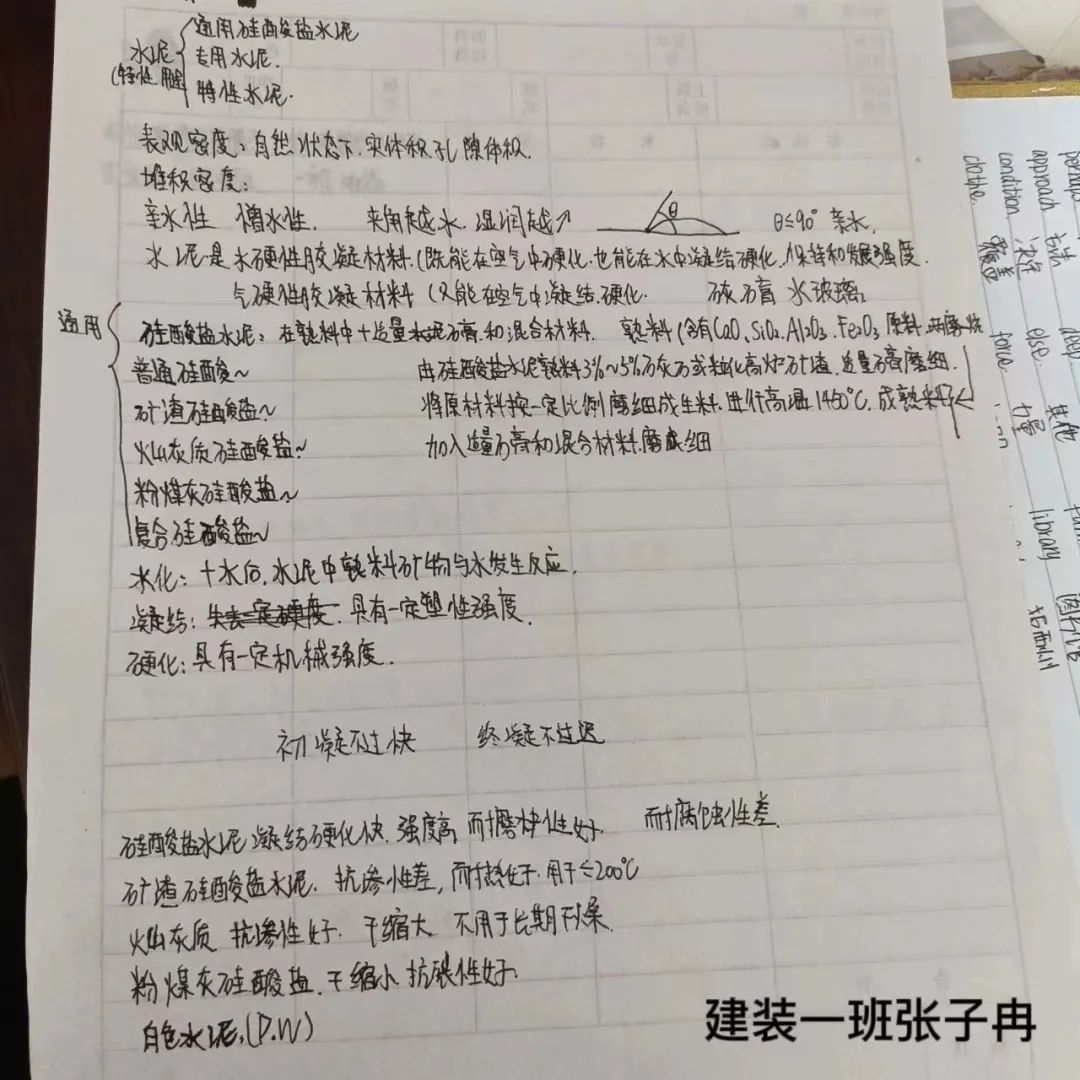 通用硅酸盐水泥
水泥 专用水泥.
(特性 用途
特性水泥.
表观密度：自然状态下.实体积孔隙体积.
堆积密度：
亲水性 憎水性. 夹角越小.湿润越↗ θ θ≤90° 亲水.
水泥是水硬性胶凝材料.(既能在空气中硬化.也能在水中凝结硬化.保持和发展强度.
气硬性胶凝材料 (只能在空气中凝结.硬化. 石膏 水玻璃
通用
硅酸盐水泥：在熟料中+适量石膏.和混合材料. 熟料(含有CaO、SiO₂.Al₂O₃.Fe₂O₃原料.
普通硅酸~ 由硅酸盐水泥熟料3%~5%石灰石或粒化高炉矿渣.适量石膏磨细.
矿渣硅酸盐~ 将原材料按一定比例磨细成生料.进行高温1450°C.成熟料
火山灰质硅酸盐~ 加入适量石膏和混合材料.磨成细
粉煤灰硅酸盐~
复合硅酸盐~
水化：十水后.水泥中熟料矿物与水发生反应.
凝结：失去一定硬度.具有一定塑性强度.
硬化：具有一定机械强度.
初凝不过快 终凝不过迟
硅酸盐水泥凝结硬化快.强度高 耐磨性好 耐腐蚀性差.
矿渣硅酸盐水泥.抗渗性差，耐热好.用于≤200°C
火山灰质 抗渗性好.干缩大 不用于长期干燥.
粉煤灰硅酸盐.干缩小 抗裂性好
白色水泥.(P.W)
建装一班张子冉
perhaps
approach 方法 deep
condition 决定 else 其他
clothe 覆盖 force 力量
library 图书馆